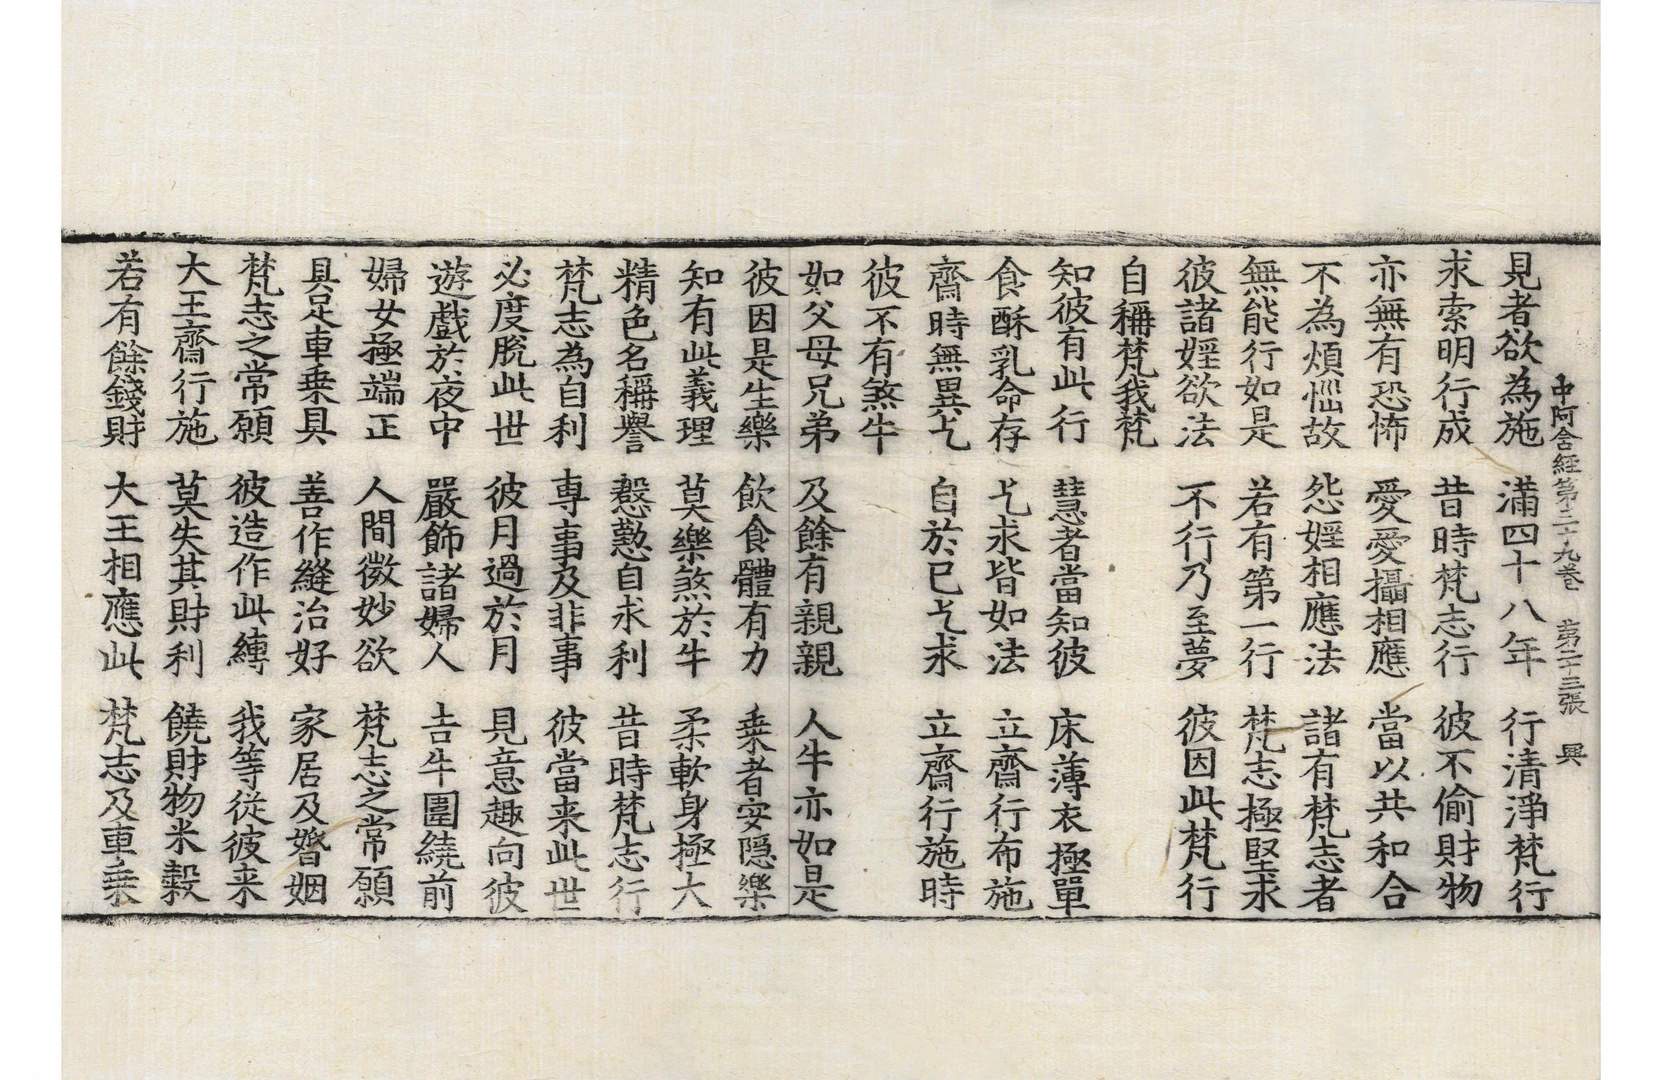 中阿含経第二十九卷　第二十三張　興
見者欲為施　滿四十八年　行清淨梵行
求索明行成　昔時梵志行　彼不偷財物
亦無有恐怖　愛愛攝相應　當以共和合
不為煩惱故　怨婬相應法　諸有梵志者
無能行如是　若有第一行　梵志極堅求
彼諸婬欲法　不行乃至夢　彼因此梵行
自稱梵我梵
知彼有此行　慧者當知彼　床薄衣極單
食酥乳命存　乞求皆如法　立齋行布施
齋時無異乞　自於已乞求　立齋行施時
彼不有煞牛
如父母兄弟　及餘有親親　人牛亦如是
彼因是生樂　飲食體有力　乗者安隠樂
知有此義理　莫樂煞於牛　柔軟身極大
精色名稱譽　慇懃自求利　昔時梵志行
梵志為自利　専事及非事　彼當来此世
必度脫此世　彼月過於月　見意趣向彼
遊戲於夜中　嚴飾諸婦人　吉牛圍繞前
婦女極端正　人間微妙欲　梵志之常願
具足車乗具　善作縫治好　家居及婚姻
梵志之常願　彼造作此縛　我等従彼来
大王齋行施　莫失其財利　饒財物米穀
若有餘錢財　大王相應此　梵志及車乗